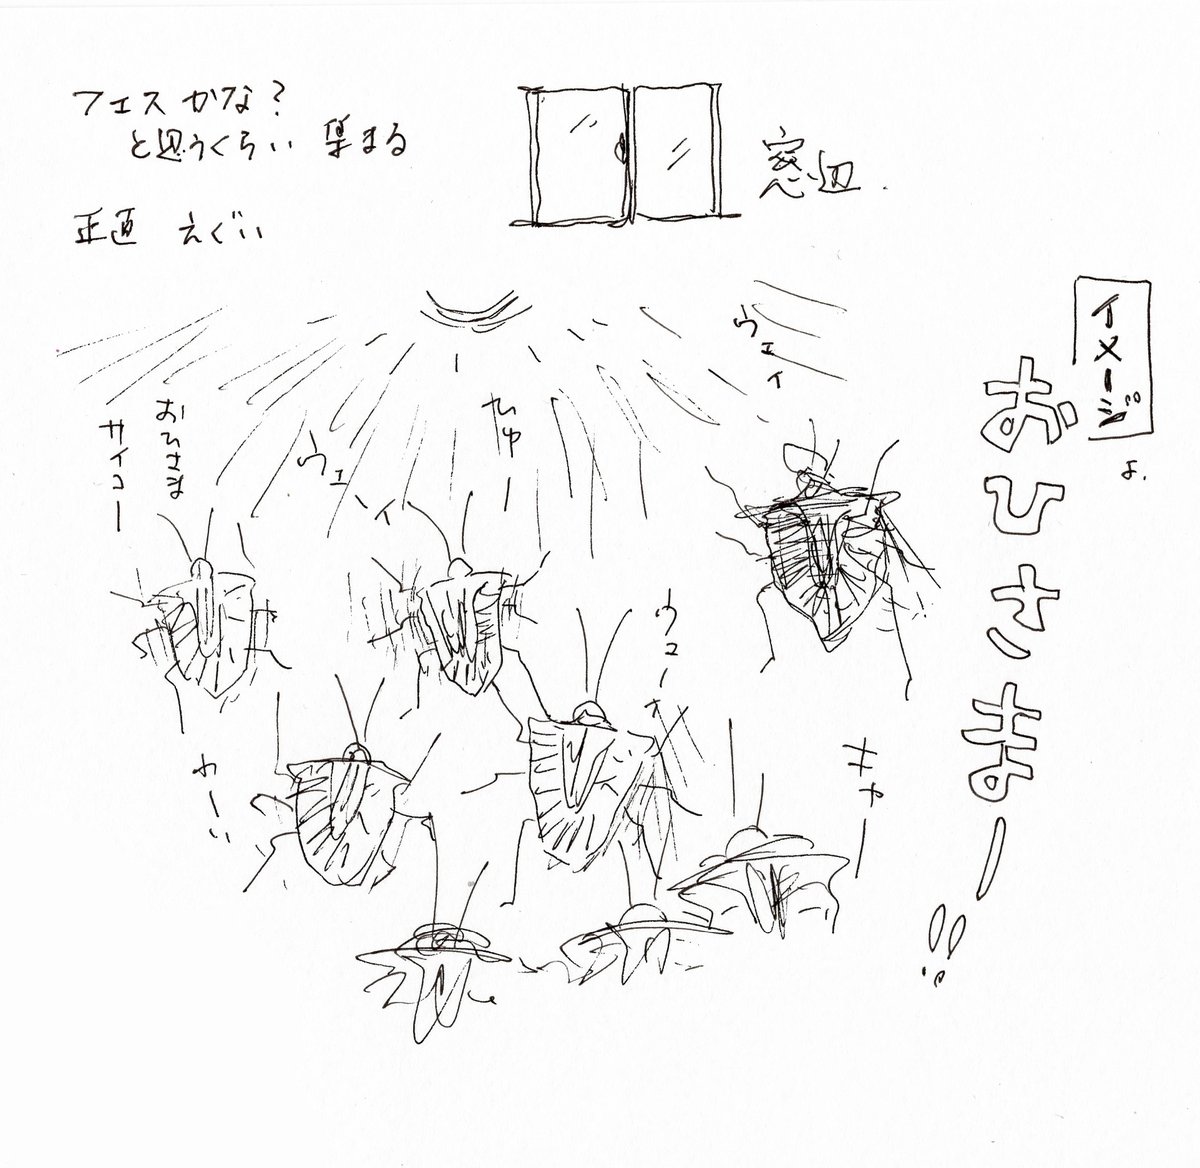 フェスかな?
と思うくらい 集まる
正直 えぐい
窓辺.
イメージ
よ.
おひさまー!!
ウェイ
ひゅー
ウェイ
おひさま
サイコー
ウェーイ
キャー
わーい